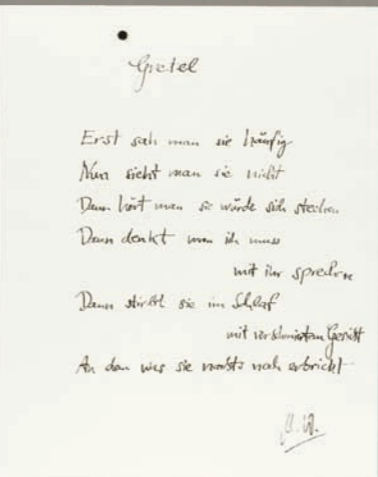 Gretel
Erst sah man sie häufig
Nun sieht man sie nicht
Dann hört man sie würde sich stechen
Dann denkt man ich muss
mit ihr sprechen
Dann stirbt sie im Schlaf
mit verschmiertem Gesicht
An dem was sie nachts noch erbricht